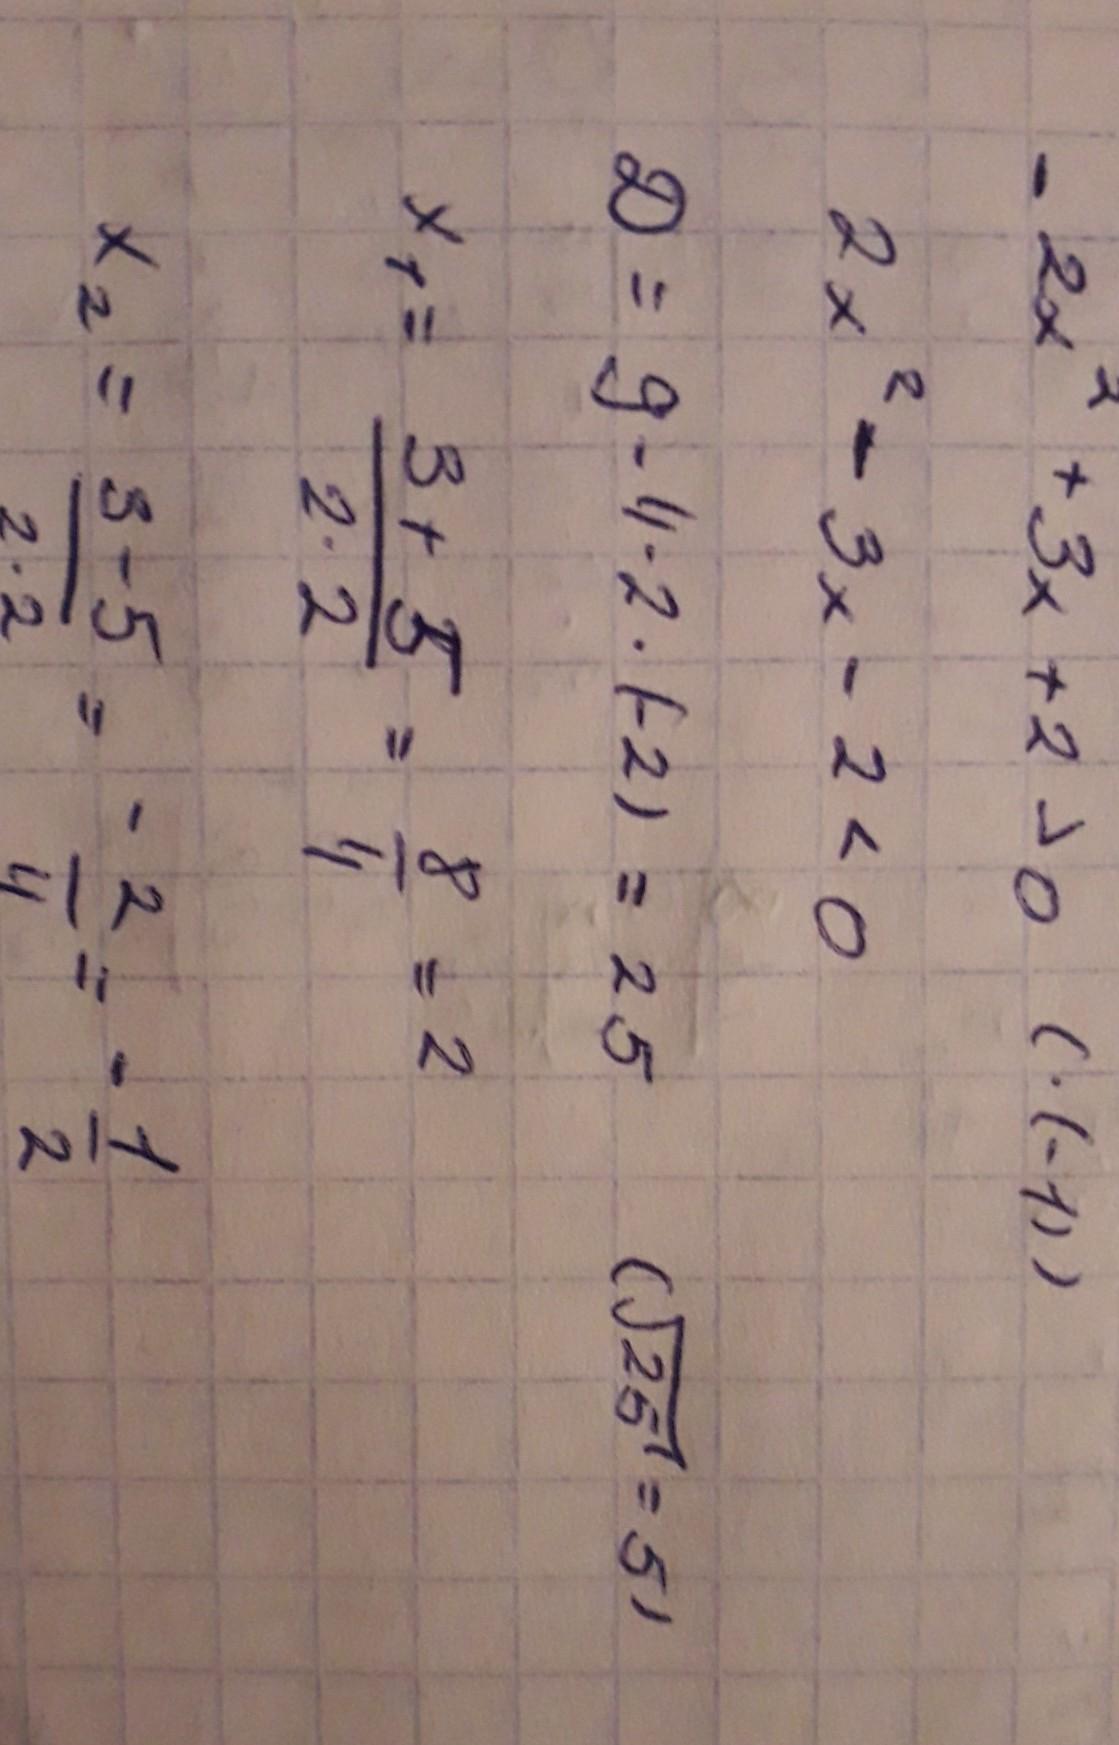 -2x² + 3x + 2 > 0 (·(-1))
2x² - 3x - 2 < 0
D = 9 - 4·2·(-2) = 25 (√25 = 5)
x₁ = (3+5)/(2·2) = 8/4 = 2
x₂ = (3-5)/(2·2) = -2/4 = -1/2